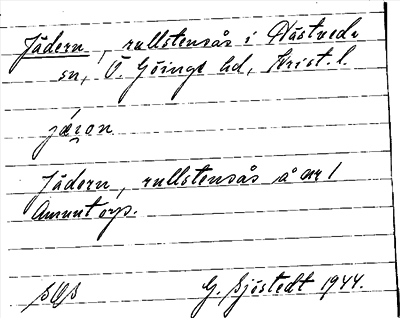 Jädern, rullstensås i Hästveda
sn, V. Göinge hd, Krist. l.
järon
Jädern, rullstensås å nr 1
Amuntorp.
G. Sjöstedt 1944.